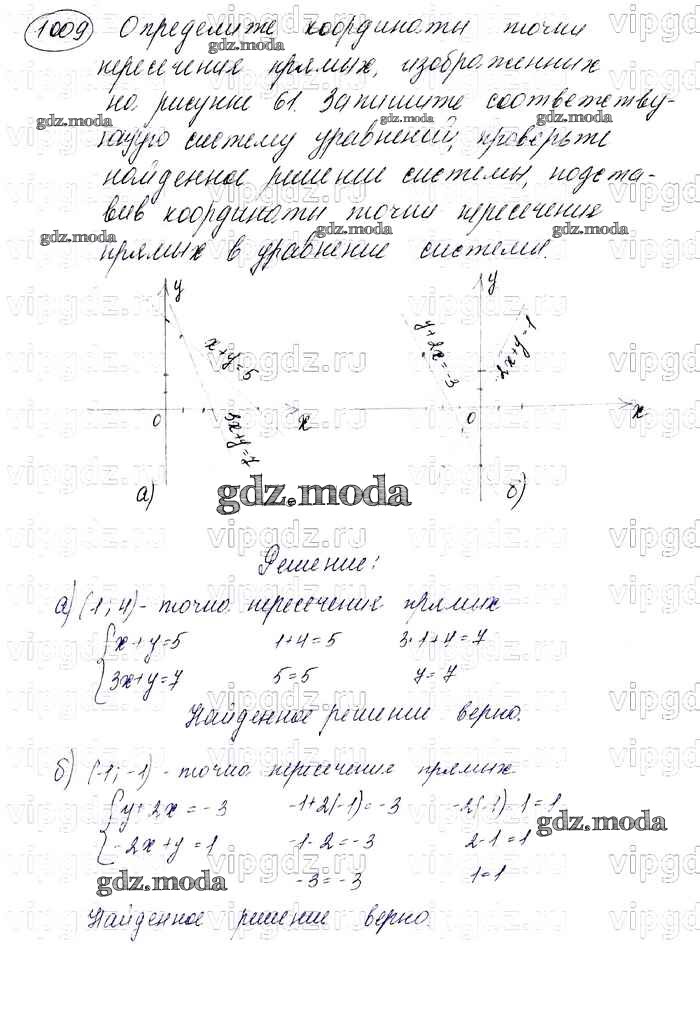 1009 Определите координаты точки
пересечения прямых, изображенных
на рисунке 61. Запишите соответству-
ющую систему уравнений, проверьте
найденное решение системы, подста-
вив координаты точки пересечения
прямых в уравнение системы.
y
x+y=5
3x+y=7
0
x
а)
y
y+2x=-3
-2x+y=1
0
x
б)
gdz.moda
Решение:
а) (1; 4) - точка пересечения прямых
x+y=5 1+4=5 3·1+4=7
3x+y=7 5=5 7=7
Найденное решение верно.
б) (-1; -1) - точка пересечения прямых
y+2x=-3 -1+2(-1)=-3 -2(-1)-1=1
-2x+y=1 -1-2=-3 2-1=1
-3=-3 1=1
Найденное решение верно.